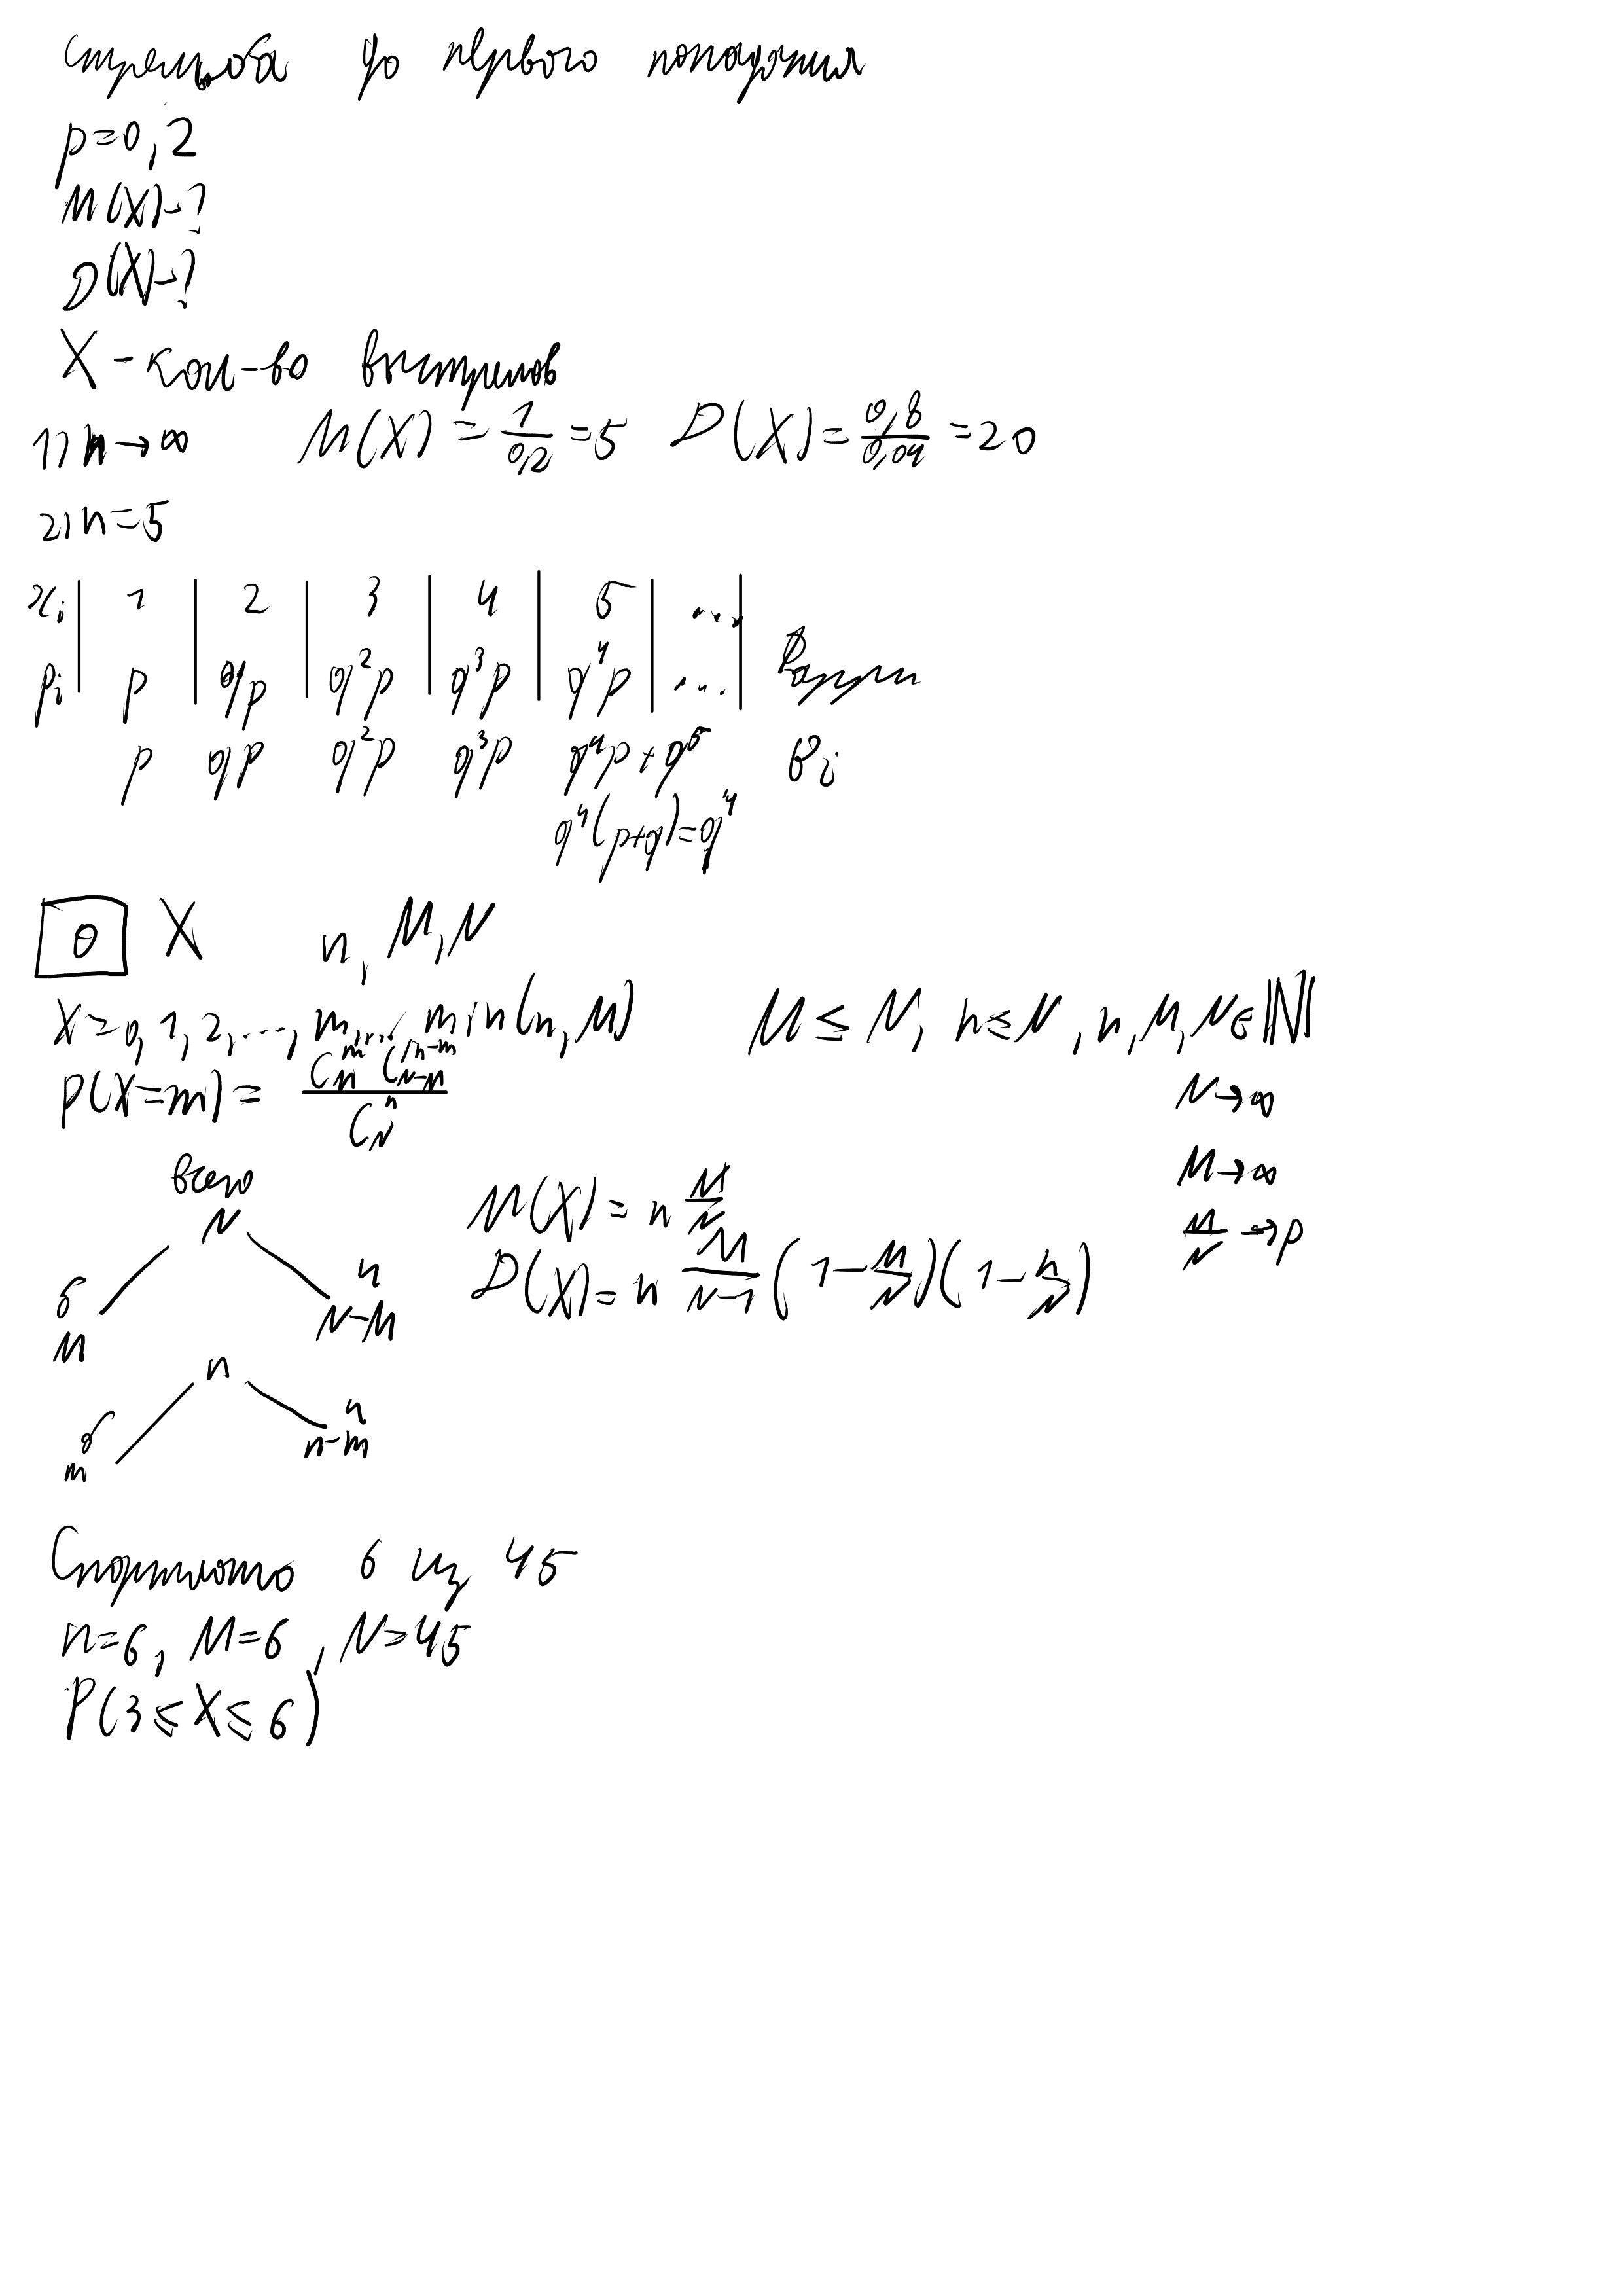 стрельба до первого попадания
p=0,2
M(X)-?
D(X)-?
X - кол-во выстрелов
1) n→∞ M(X) = 1/0,2 = 5 D(X) = 0,8/0,04 = 20
2) n=5
xi | 1 | 2 | 3 | 4 | 5 | ... |
pi | p | qp | q²p | q³p | q⁴p | ... |
p qp q²p q³p q⁴p + q⁵
q⁴(p+q)=q⁴
θ X n, M, N
X=0, 1, 2, ..., m, ..., min(n, M) M ≤ N, n ≤ N, n, M, N ∈ ℕ
P(X=m) = C_M^m C_{N-M}^{n-m} / C_N^n N→∞
M→∞
M/N → p
всего
N
M(X) = n M/N
D(X) = n M/(N-1) (1 - M/N)(1 - n/N)
б ч
M N-M
n
б ч
m n-m
Спортлото 6 из 45
n=6, M=6, N=45
P(3 ≤ X ≤ 6)